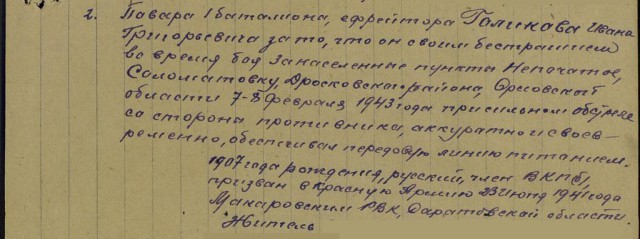 2. Павара 1 баталиона, ефрейтора Галикава Ивана
Григорьевича за то, что он своим бестрашием
во время боя за населенные пункты Непочатое,
Саломатовку, Дросковскаго района, Орловской
области 7-8 февраля 1943 года при сильном обстреле
со стороны противника, аккуратно и своев-
ременно, обеспечивал передовую линию питанием.
1907 года рождения, русский, член ВКПб,
призван в Красную Армию 23 июня 1941 года
Макаровским РВК, Саратовской области.
Житель